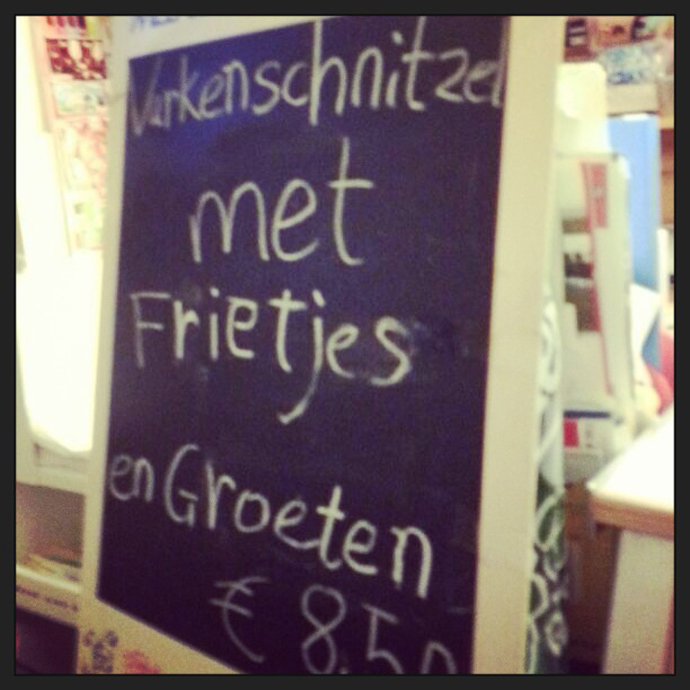 Varkenschnitzel
met
Frietjes
en Groeten
€ 8.50